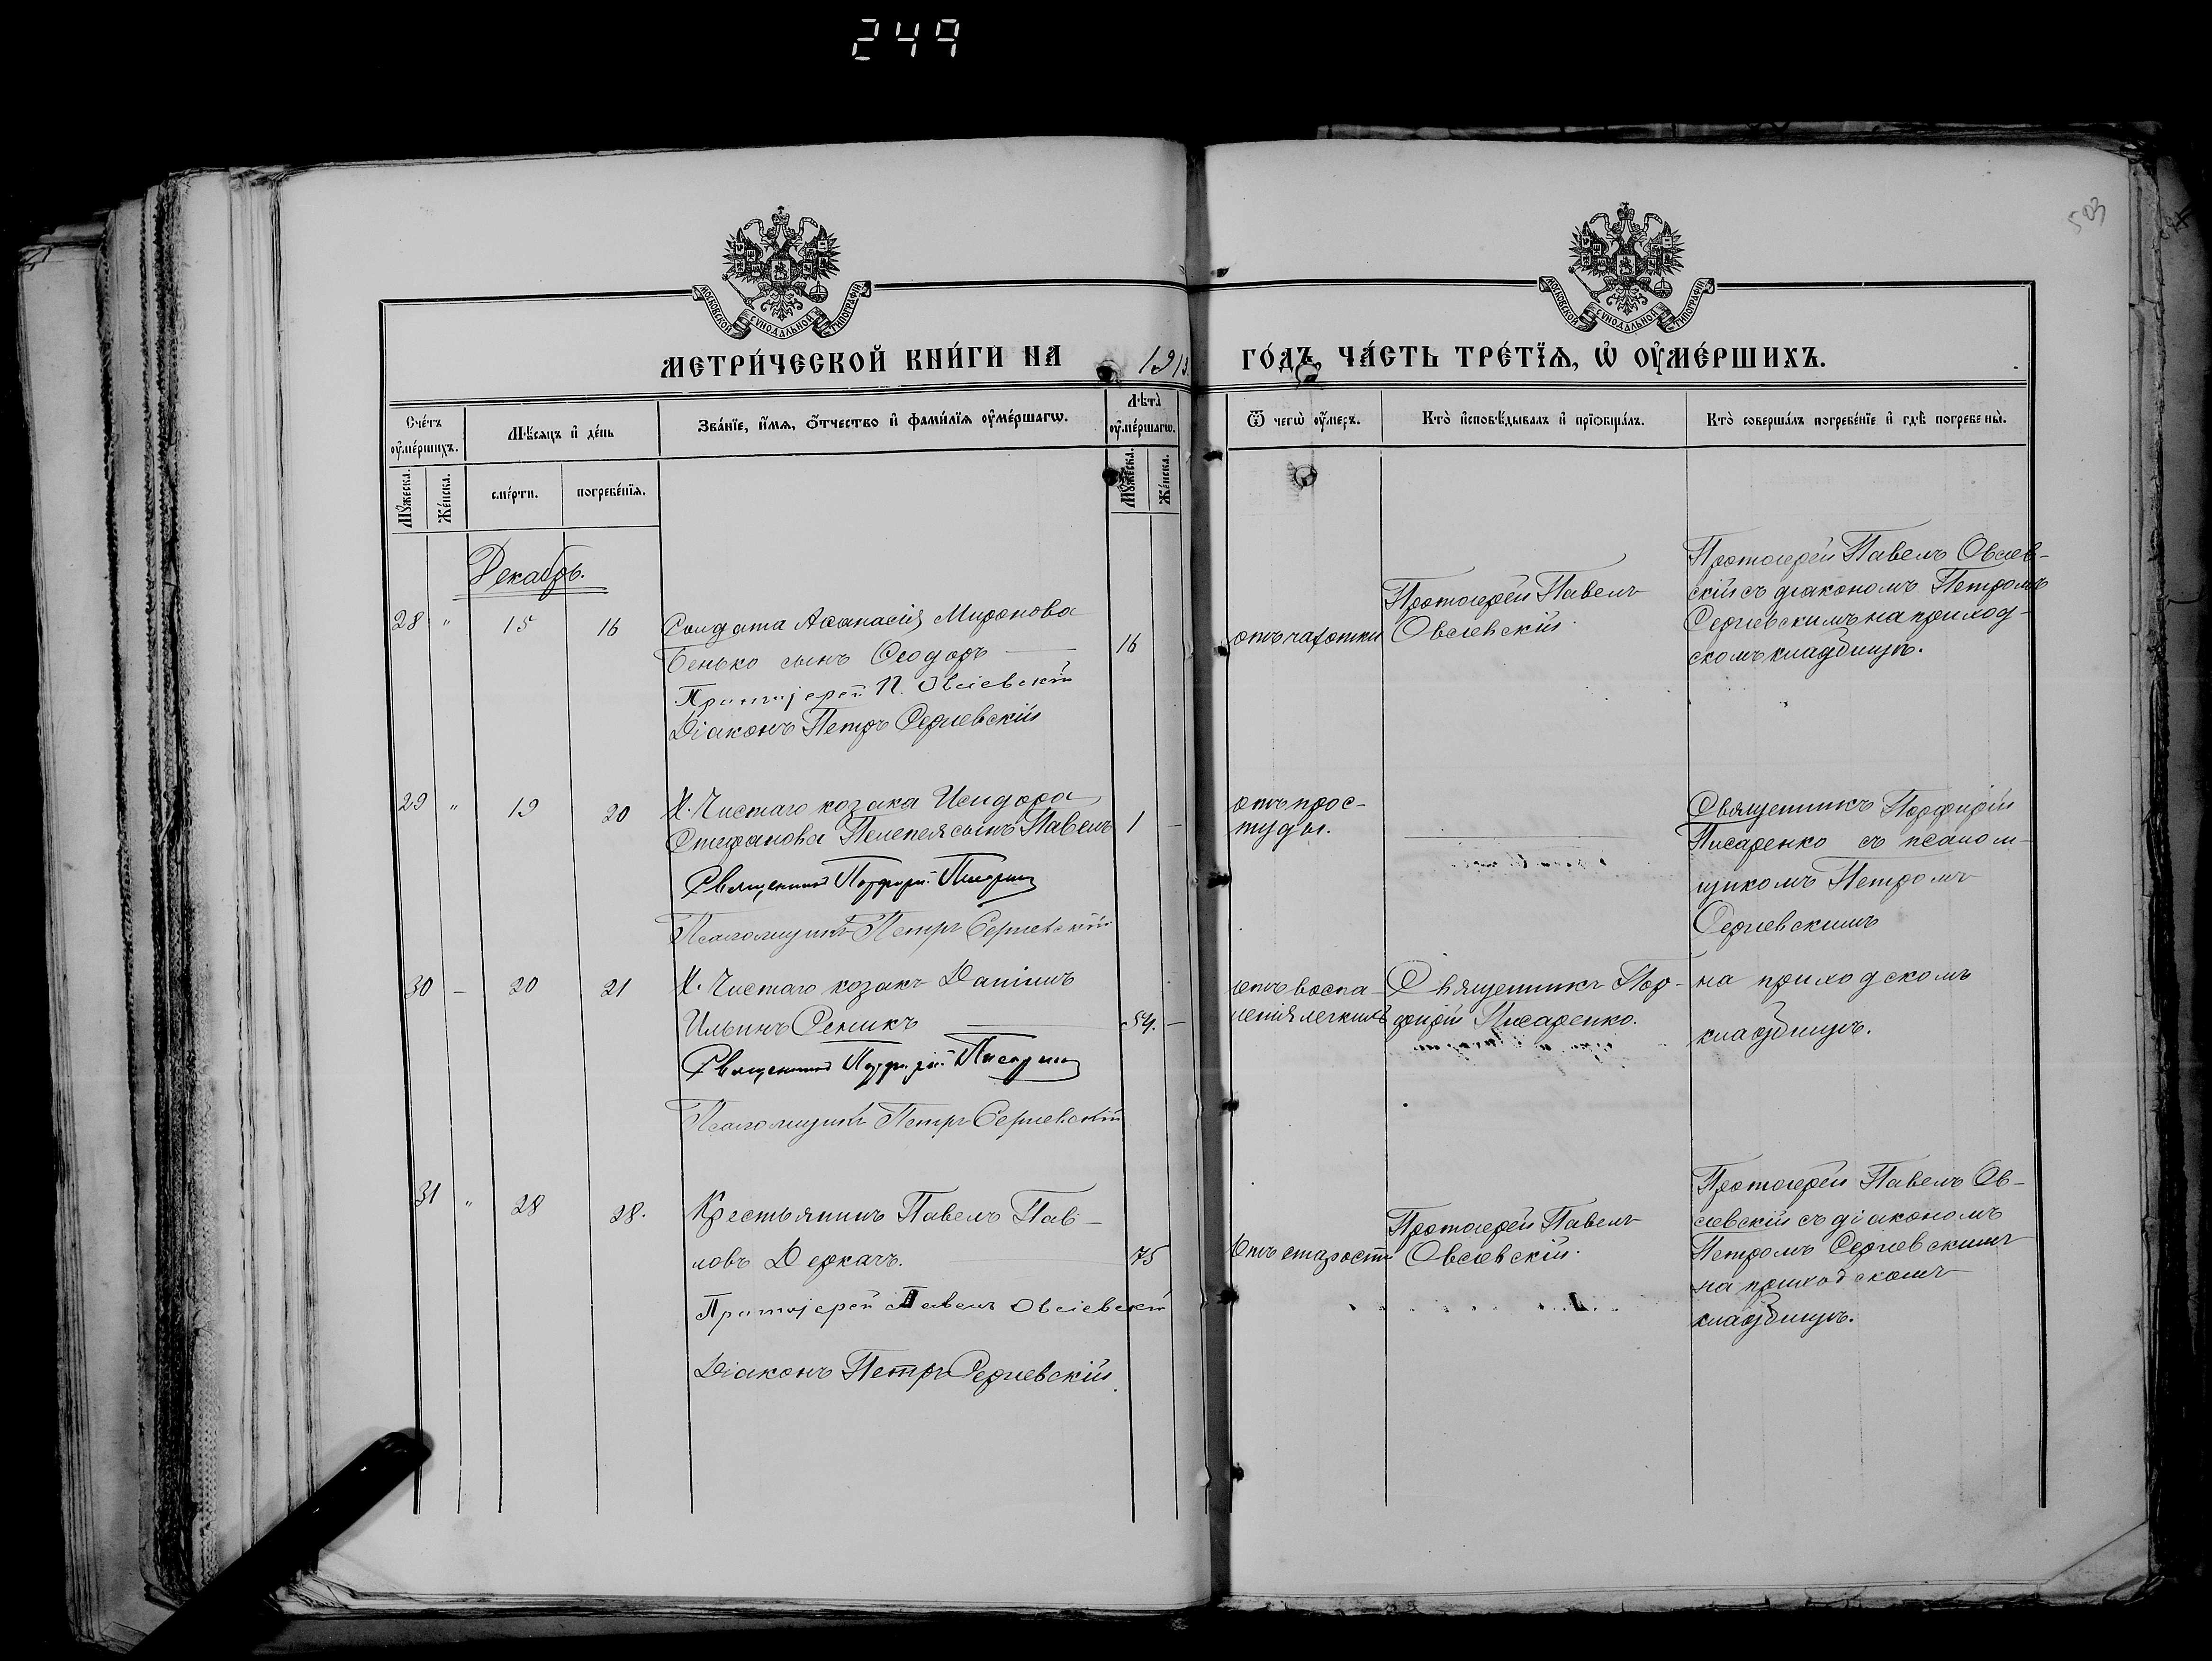 249
503
МОСКОВСКОЙ СѴНОДАЛЬНОЙ ТИПОГРАФІИ
МОСКОВСКОЙ СѴНОДАЛЬНОЙ ТИПОГРАФІИ
МЕТРИ́ЧЕСКОЙ КНИ́ГИ НА 191
ГО́ДЪ, ЧА́СТЬ ТРЕ́ТЇѦ, Ѡ҆ ОУ҆МЕ́РШИХЪ.
Сче́тъ оу҆ме́ршихъ.
Мѣ́сяцъ и҆ де́нь
Зва́нїе, и҆́мѧ, ѻ҆́тчество и҆ фами́лїѧ оу҆ме́ршагѡ.
Лѣта̀ оу҆ме́ршагѡ.
Ѿ чегѡ̀ оу҆́меръ.
Кто̀ и҆сповѣ́дывалъ и҆ прїѻбща́лъ.
Кто̀ соверша́лъ погребе́нїе и҆ гдѣ̀ погребены̀.
Мꙋ́жеска.
Же́нска.
сме́рти.
погребе́нїѧ.
Мꙋ́жеска.
Же́нска.
Декабрь.
28 " 15 16
Солдата Аѳанасія Миронова
Бенько сынъ Ѳеодоръ —
16
Протоіерей П. Овсіевскій
Діаконъ Петръ Сергіевскій
отъ чахотки
Протоіерей Павелъ
Овсіевскій.
Протоіерей Павелъ Овсіев-
скій съ діакономъ Петромъ
Сергіевскимъ на приход-
скомъ кладбищѣ.
29 " 19 20
Х. Чистаго козака Исидора
Стефанова Пелепея сынъ Павелъ
1 —
Священникъ Порфирій Писаренко
Псаломщикъ Петръ Сергіевскій
отъ прос-
туды.
Священникъ Порфирій
Писаренко съ псалом-
щикомъ Петромъ
Сергіевскимъ
30 — 20 21
Х. Чистаго козакъ Даніилъ
Ильинъ Сеникъ —
54. —
Священникъ Порфирій Писаренко
Псаломщикъ Петръ Сергіевскій
отъ воспа-
ленія легкихъ
Священникъ Пор-
фирій Писаренко.
на приходскомъ
кладбищѣ.
31 " 28 28.
Крестьянинъ Павелъ Пав-
ловъ Деркачъ.
75
Протоіерей Павелъ Овсіевскій
Діаконъ Петръ Сергіевскій
Отъ старости
Протоіерей Павелъ
Овсіевскій.
Протоіерей Павелъ Ов-
сіевскій съ діакономъ
Петромъ Сергіевскимъ
на приходскомъ
кладбищѣ.